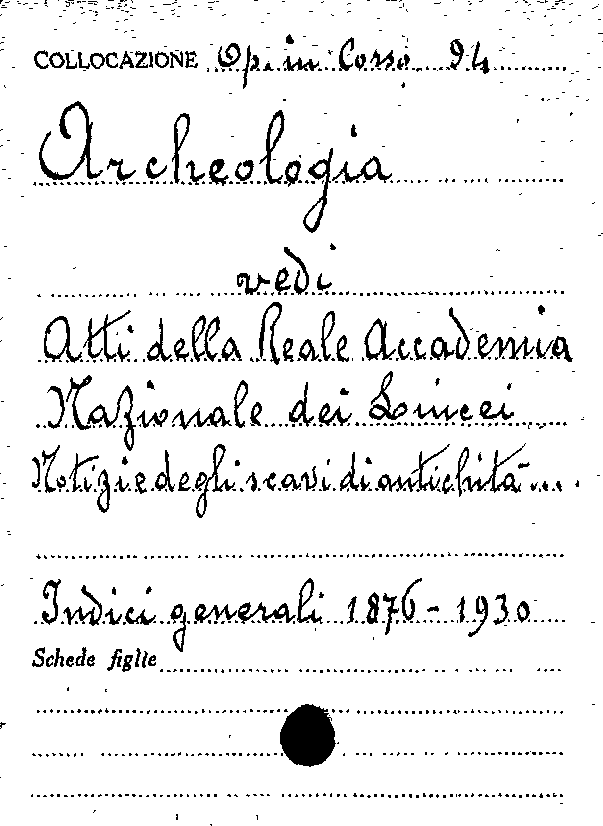 COLLOCAZIONE Op. in Corso 94
Archeologia
vedi
Atti della Reale Accademia
Nazionale dei Lincei
Notizie degli scavi di antichità ...
Indici generali 1876 - 1930
Schede figlie